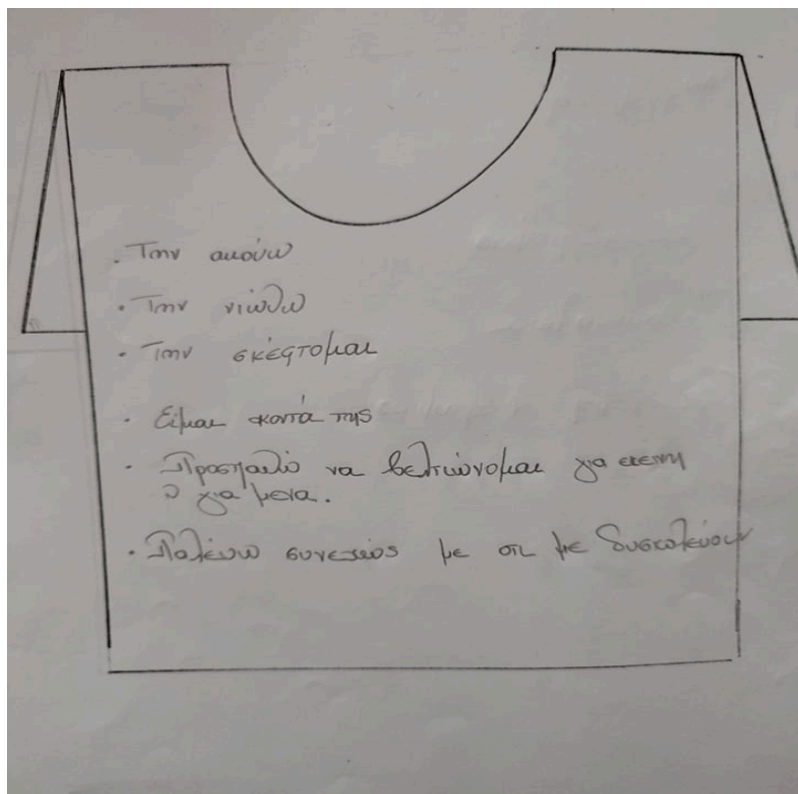 · Την ακούω
· Την νιώθω
· Την σκέφτομαι
· Είμαι κοντά της
· Προσπαθώ να βελτιώνομαι για εκείνη
για μένα.
· Παλεύω συνεχώς με ότι με δυσκολεύουν